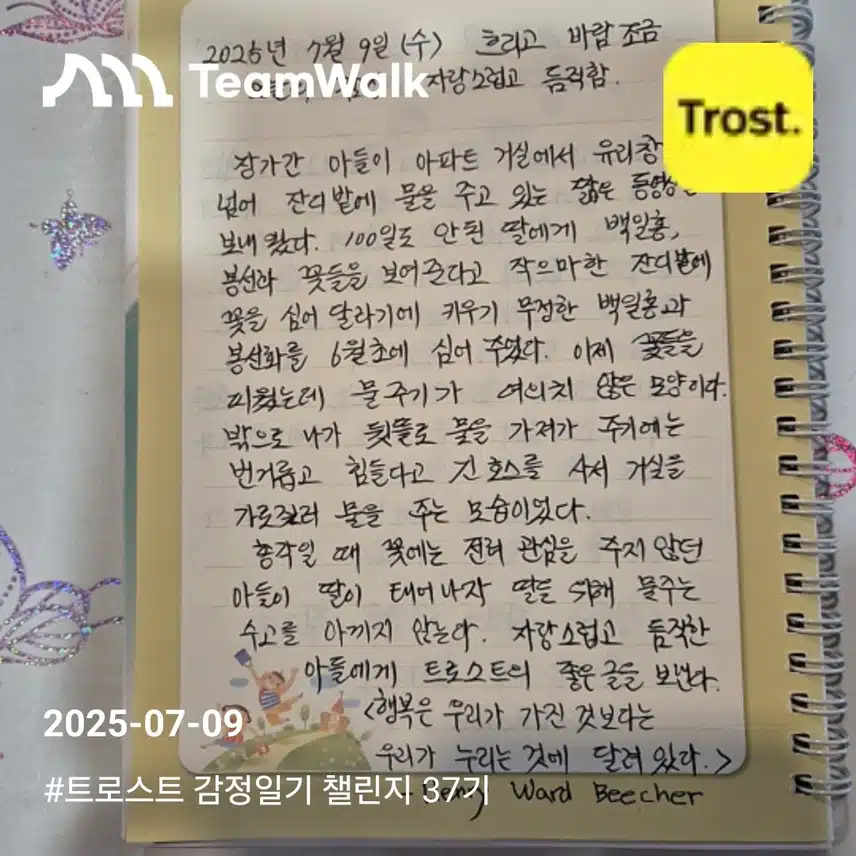 2025년 7월 9일 (수) 흐리고 바람 조금
TeamWalk
자랑스럽고 듬직함.
Trost.
장가간 아들이 아파트 거실에서 유리창
넘어 잔디밭에 물을 주고 있는 짧은 동영상을
보내 왔다. 100일도 안된 딸에게 백일홍,
봉선화 꽃들을 보여준다고 작으마한 잔디밭에
꽃을 심어 달라기에 키우기 무점한 백일홍과
봉선화를 6월초에 심어 주었다. 이제 꽃들을
피웠는데 물주기가 여의치 않은 모양이다.
밖으로 나가 뒷뜰로 물을 가져가 주기에는
번거롭고 힘들다고 긴 호스를 사서 거실을
가로질러 물을 주는 모습이었다.
총각일 때 꽃에는 전혀 관심을 주지 않던
아들이 딸이 태어나자 딸을 위해 물주는
수고를 아끼지 않는다. 자랑스럽고 듬직한
아들에게 트로스트의 좋은 글을 보낸다.
<행복은 우리가 가진 것보다는
우리가 누리는 것에 달려 있다.>
Ward Beecher
2025-07-09
#트로스트 감정일기 챌린지 37기